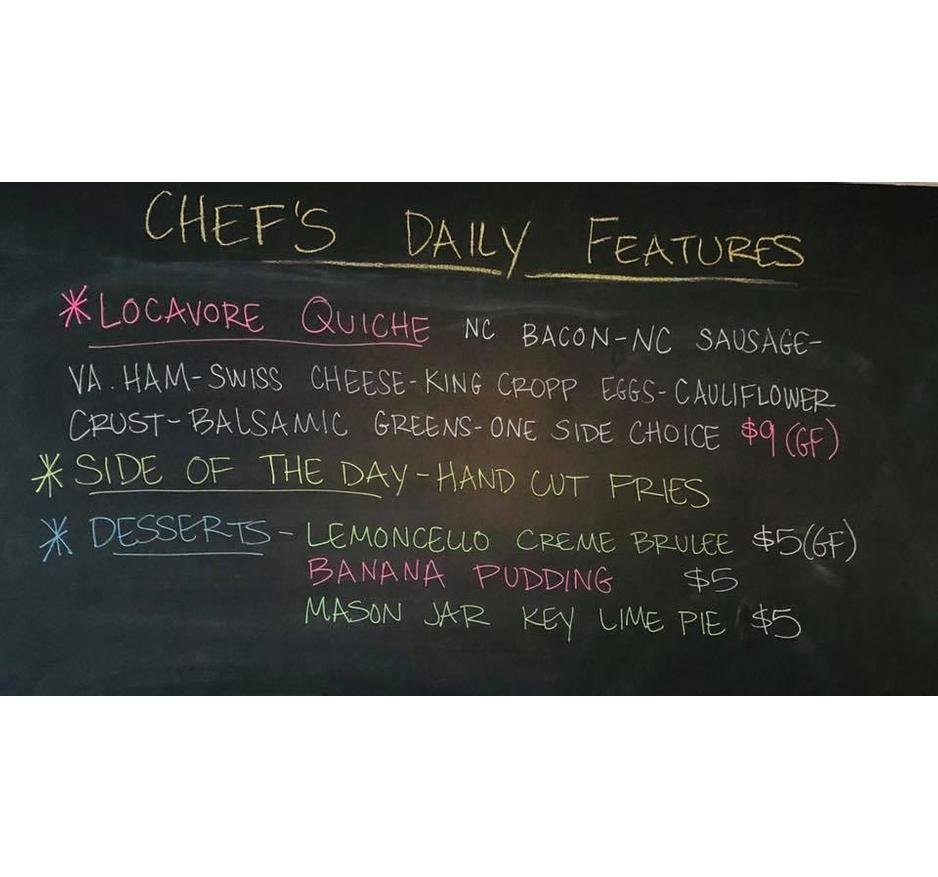 CHEF'S DAILY FEATURES
*LOCAVORE QUICHE NC BACON-NC SAUSAGE-
VA. HAM-SWISS CHEESE-KING CROPP EGGS-CAULIFLOWER
CRUST-BALSAMIC GREENS-ONE SIDE CHOICE $9 (GF)
* SIDE OF THE DAY-HAND CUT FRIES
* DESSERTS- LEMONCELLO CREME BRULEE $5(GF)
BANANA PUDDING $5
MASON JAR KEY LIME PIE $5